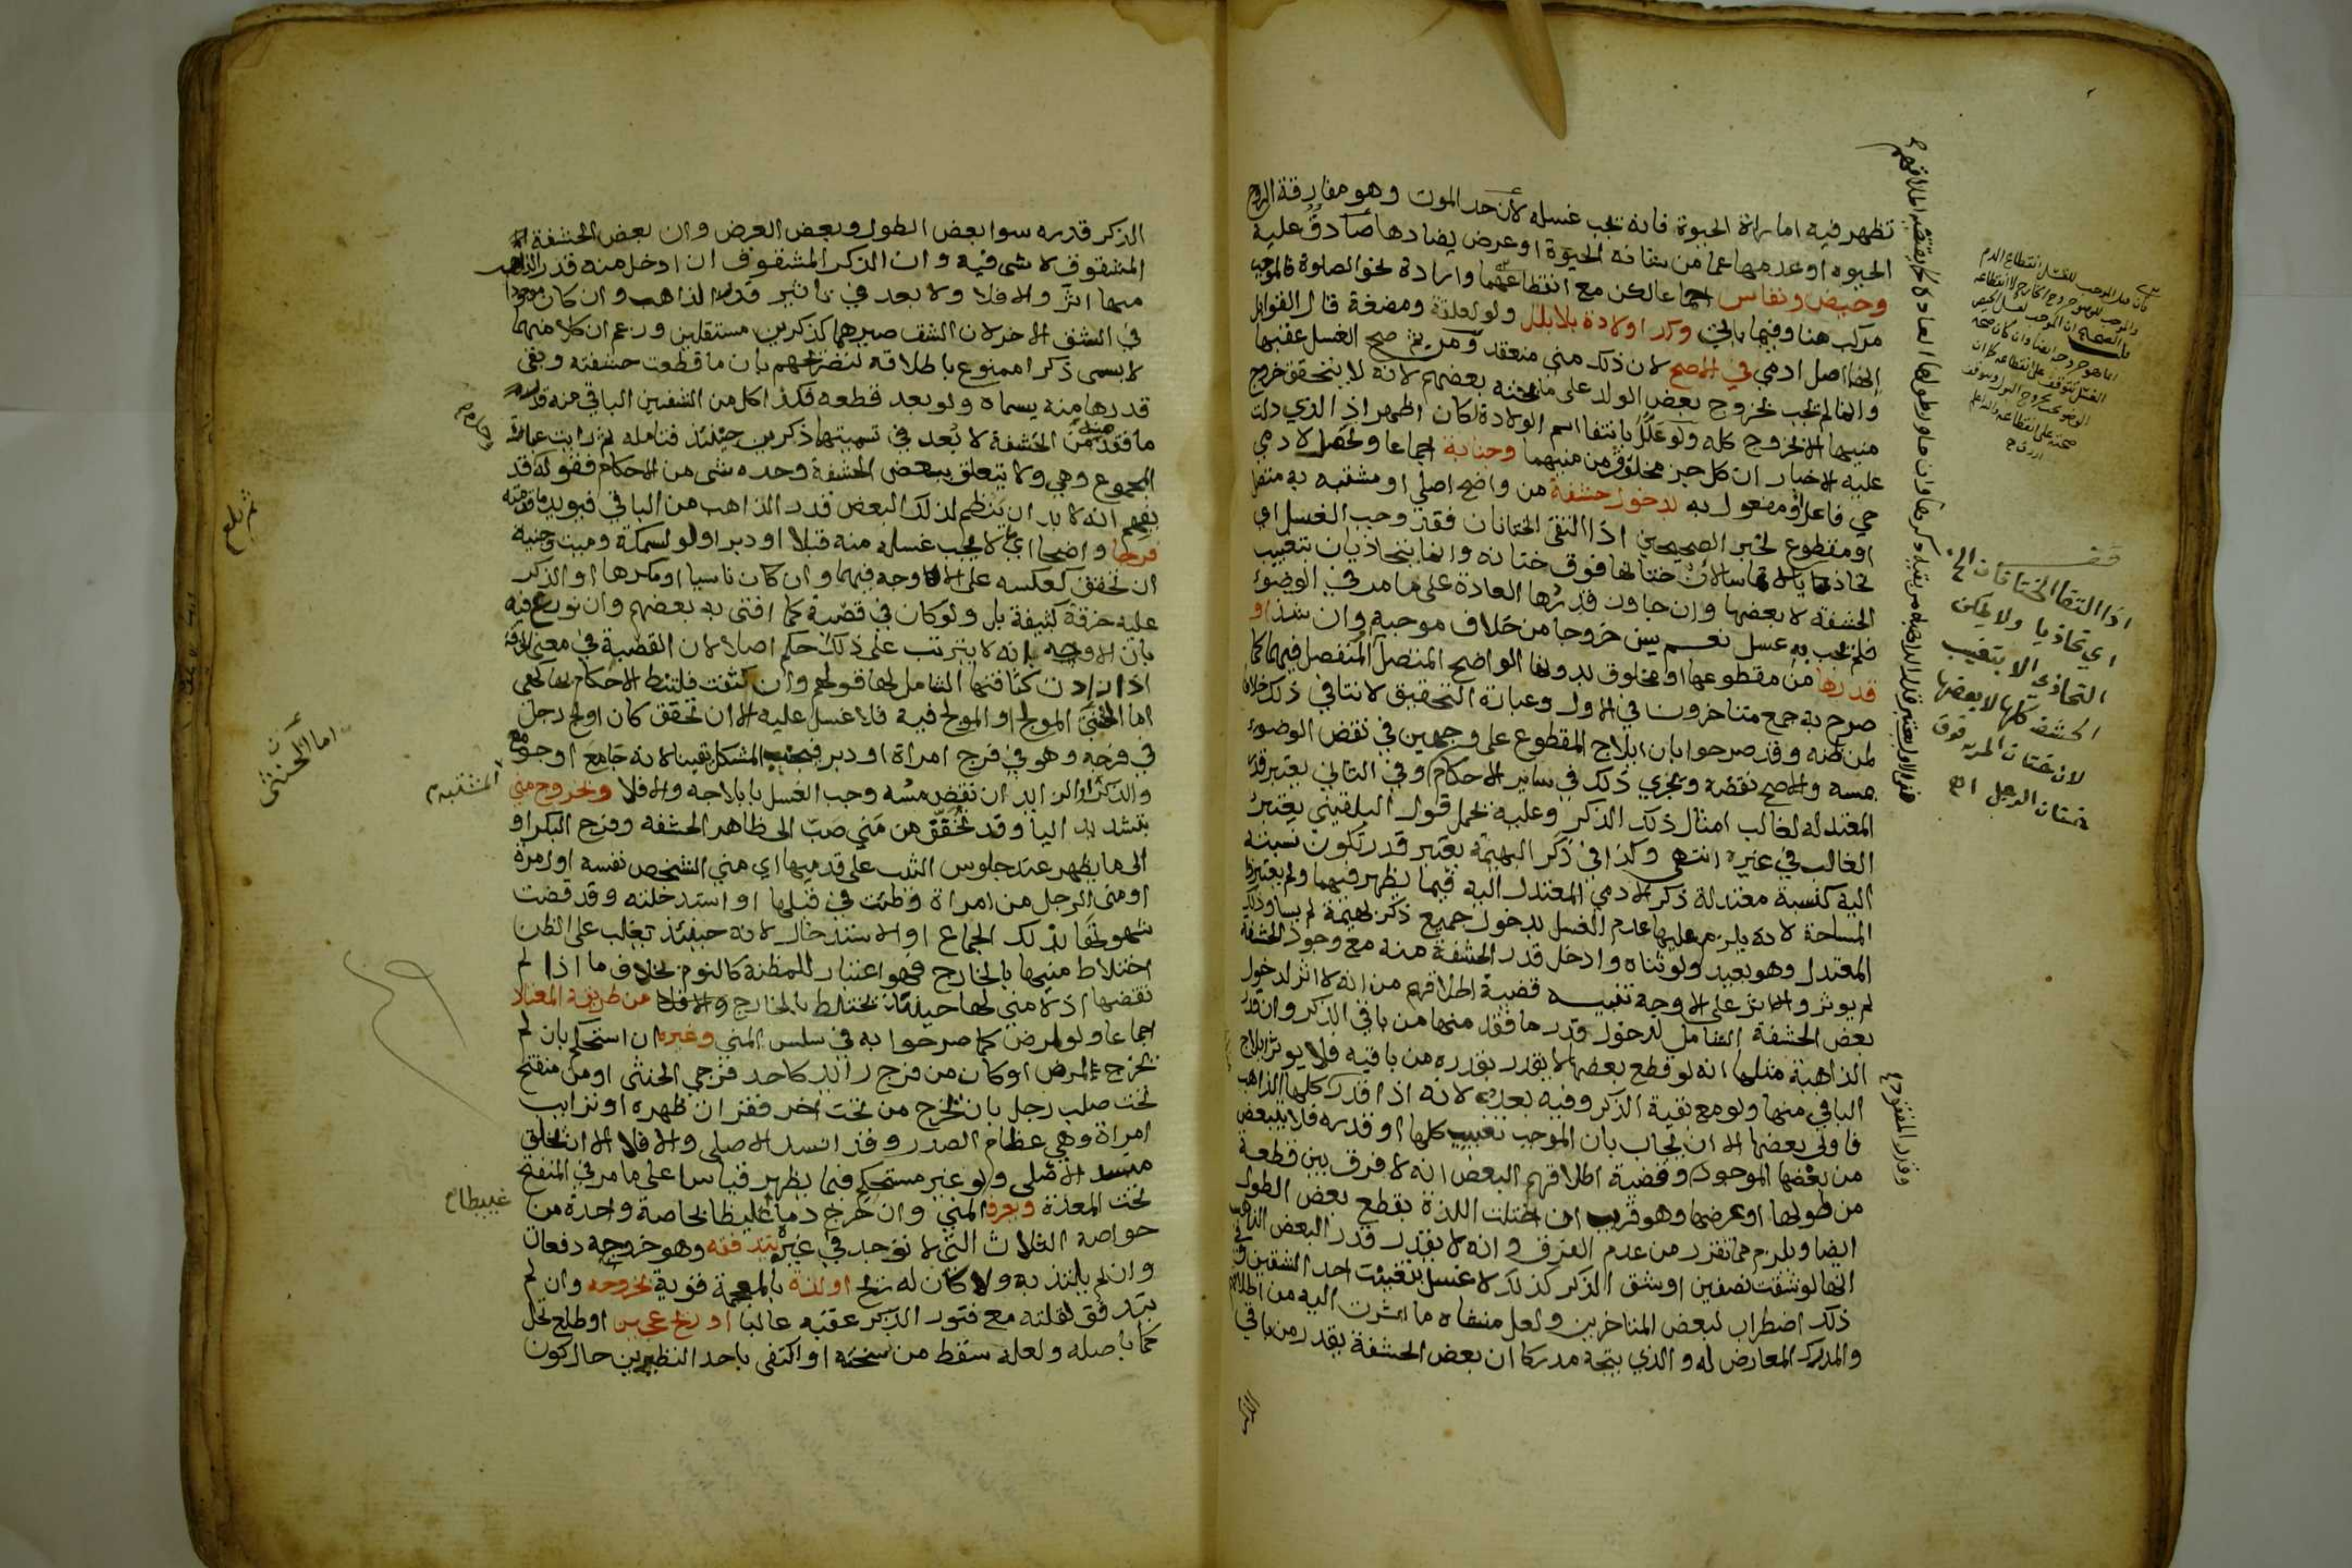 تظهر فيه امارة الحيوة فانه يجب غسله لأن حد الموت وهو مفارقة الروح
الحيوة او عدمها عما من شانه الحيوة او عرض يضادها صادق عليه
وحيض ونفاس اجماعا لكن مع انقطاعهما وارادة نحو الصلوة فالموجب
مركب هنا وفيما ياتي وكذا ولادة بلا بلل ولو لعلقة ومضغة قال القوابل
انها اصل ادمي في الاصح لان ذلك مني منعقد ومن ثم صح الغسل عقبها
وانما لم يجب بخروج بعض الولد على ما بحثه بعضهم لانه لا يتحقق خروج
منيها الا بخروج كله ولو علل بانتفا اسم الولادة لكان اظهر اذ الذي دلت
عليه الاخبار ان كل جزء مخلوق من منيهما وجنابة اجماعا وتحصل لادمي
حي فاعل او مفعول به بدخول حشفة من واضح اصلي او مشتبه به متصل
او مقطوع لخبر الصحيحين اذا التقى الختانان فقد وجب الغسل اي
تحاذيا لا تماسا لان ختانها فوق ختانه وانما يتحاذيان بتغييب
الحشفة لا بعضها وان جاوز قدرها العادة على ما مر في الوضوء
فلم يجب به غسل نعم يسن خروجا من خلاف موجبه وان شذ او
قدرها من مقطوعها او مخلوق بدونها الواضح المتصل او المنفصل فيهما كما
صرح به جمع متاخرون في الاول وعبارة التحقيق لا تنافي ذلك خلافا
لمن ظنه وقد صرحوا بان ايلاج المقطوع على وجهين في نقض الوضوء
بمسه والاصح نقضه ويجري ذلك في سائر الاحكام وفي الثاني يعتبر قدر
المعتدلة لغالب امثال ذلك الذكر وعليه يحمل قول البلقيني يعتبر
الغالب في غيره انتهى وكذا في ذكر البهيمة يعتبر قدر تكون نسبته
اليه كنسبة معتدلة ذكر الادمي المعتدل اليه فيما يظهر فيهما ولم يعتبروا
المساحة لانه يلزم عليها عدم الغسل بدخول جميع ذكر بهيمة لم يساو ذلك
المعتدل وهو بعيد ولو ثناه وادخل قدر الحشفة منه مع وجود الحشفة
لم يوثر والا اثر على الاوجه تنبيه قضية اطلاقهم من انه لا اثر لدخول
بعض الحشفة الشامل لدخول قدر ما فقد منها من باقي الذكر وان قدر
الذاهبة مثلها انه لو قطع بعضها لا يقدر بقدره من باقيه فلا يوثر ايلاج
الباقي منها ولو مع بقية الذكر وفيه بعد لانه اذا قدر كلها الذاهب
فاولى بعضها الا ان يجاب بان الموجب تغييب كلها او قدره فلا يتبعض
من بعضها الموجود وقضية اطلاقهم البعض انه لا فرق بين قطعة
من طولها او عرضها وهو قريب ان اختلت اللذة بقطع بعض الطول
ايضا ويلزم مما تقرر من عدم الفرق وانه لا يقدر قدر البعض الذاهب
انها لو شقت نصفين او شق الذكر كذلك لا غسل بتغييب احد الشقين وفي
ذلك اضطراب لبعض المتاخرين ولعل منشاه ما اشرت اليه من اطلاقهم
والمدرك المعارض له والذي يتجه مدركا ان بعض الحشفة يقدر من باقي
اذا التقا الختانان الخ
اي تحاذيا ولا يمكن
التحاذي الا بتغيب
الحشفة كلها لا بعضها
لان ختان المراة فوق
ختان الرجل اه
الذكر قدره سوا بعض الطول وبعض العرض وان بعض الحشفة
المشقوق لا شي فيه وان الذكر المشقوق ان ادخل منه قدر الذاهب
منها اثر والا فلا ولا بعد في تاثير قدر الذاهب وان كان موجودا
في الشق الاخر لان الشق صيرهما كذكرين مستقلين وزعم ان كلا منهما
لا يسمى ذكرا ممنوع باطلاقه لتصريحهم بان ما قطعت حشفته وبقى
قدرها منه يسماه ولو بعد قطعه فكذا كل من الشفين الباقي منه قدر
ما فقد منه من الحشفة لا بعد في تسميتها ذكرين حينئذ فتامله ثم رايت عبارة
المجموع وهي ولا يتعلق ببعض الحشفة وحده شي من الاحكام فقوله قد
يفهم انه لا بد ان ينظم لذلك البعض قدر الذاهب من الباقي فيويد ما قدمته
فرجا واضحا اي ما لا يجب غسله منه قبلا او دبرا ولو لسمكة وميت وجنية
ان تحقق كعكسه على الاوجه فيهما وان كان ناسيا او مكرها او الذكر
عليه خرقة كثيفة بل ولو كان في قصبة كما افتى به بعضهم وان نوزع فيه
بان الاوجه انه لا يترتب على ذلك حكم اصلا لان القصبة في معنى الخرقة
اما الخنثى المولج او المولج فيه فلا غسل عليه الا ان تحقق كان اولج رجل
في فرجه وهو في فرج امراة او دبر فيجنب المشكل يقينا لانه جامع او جومع
والذكر الزايد ان نقض مسه وجب الغسل بايلاجه والا فلا وبخروج مني
بتشديد اليا وقد تخفف من مني صب الى ظاهر الحشفة وفرج البكر او
الى ما يظهر عند جلوس الثيب على قدميها اي مني الشخص نفسه اول مرة
او مني الرجل من امراة وطئت في قبلها او استدخلته وقد قضت
شهوتها بذلك الجماع او الاستدخال لانه حينئذ تغلب على الظن
اختلاط منيها بالخارج فهو اعتبار للمظنة كالنوم بخلاف ما اذا لم
تقضها اذ لا مني لها حينئذ يختلط بالخارج والا فلا من طريقه المعتاد
اجماعا ولو لمرض كما صرحوا به في سلس المني وغيره ان استحكم بان لم
يخرج لمرض او كان من فرج زايد كاحد فرجي الخنثى او من منفتح
تحت صلب رجل بان يخرج من تحت اخر فقران ظهره او ترايب
امراة وهي عظام الصدر وقد انسد الاصلي والا فلا الا ان يخلق
منسد الاصلي ولو غير مستحكم فيما يظهر قياسا على ما مر في المنفتح
تحت المعدة ويعرف المني وان خرج دما غليظا بخاصة واحدة من
خواصه الثلاث التي لا توجد في غيره بتدفقه وهو خروجه دفعات
وان لم يلتذ به ولا كان له ريح او لذة بالمعجمة قوية بخروجه وان لم
يتدفق لقلته مع فتور الذكر عقبه غالبا او ريح عجين او طلع نخل
كما باصله ولعله سقط من نسخته او اكتفى باحد النظيرين حال كون
اما الخنثى
المشتبه م